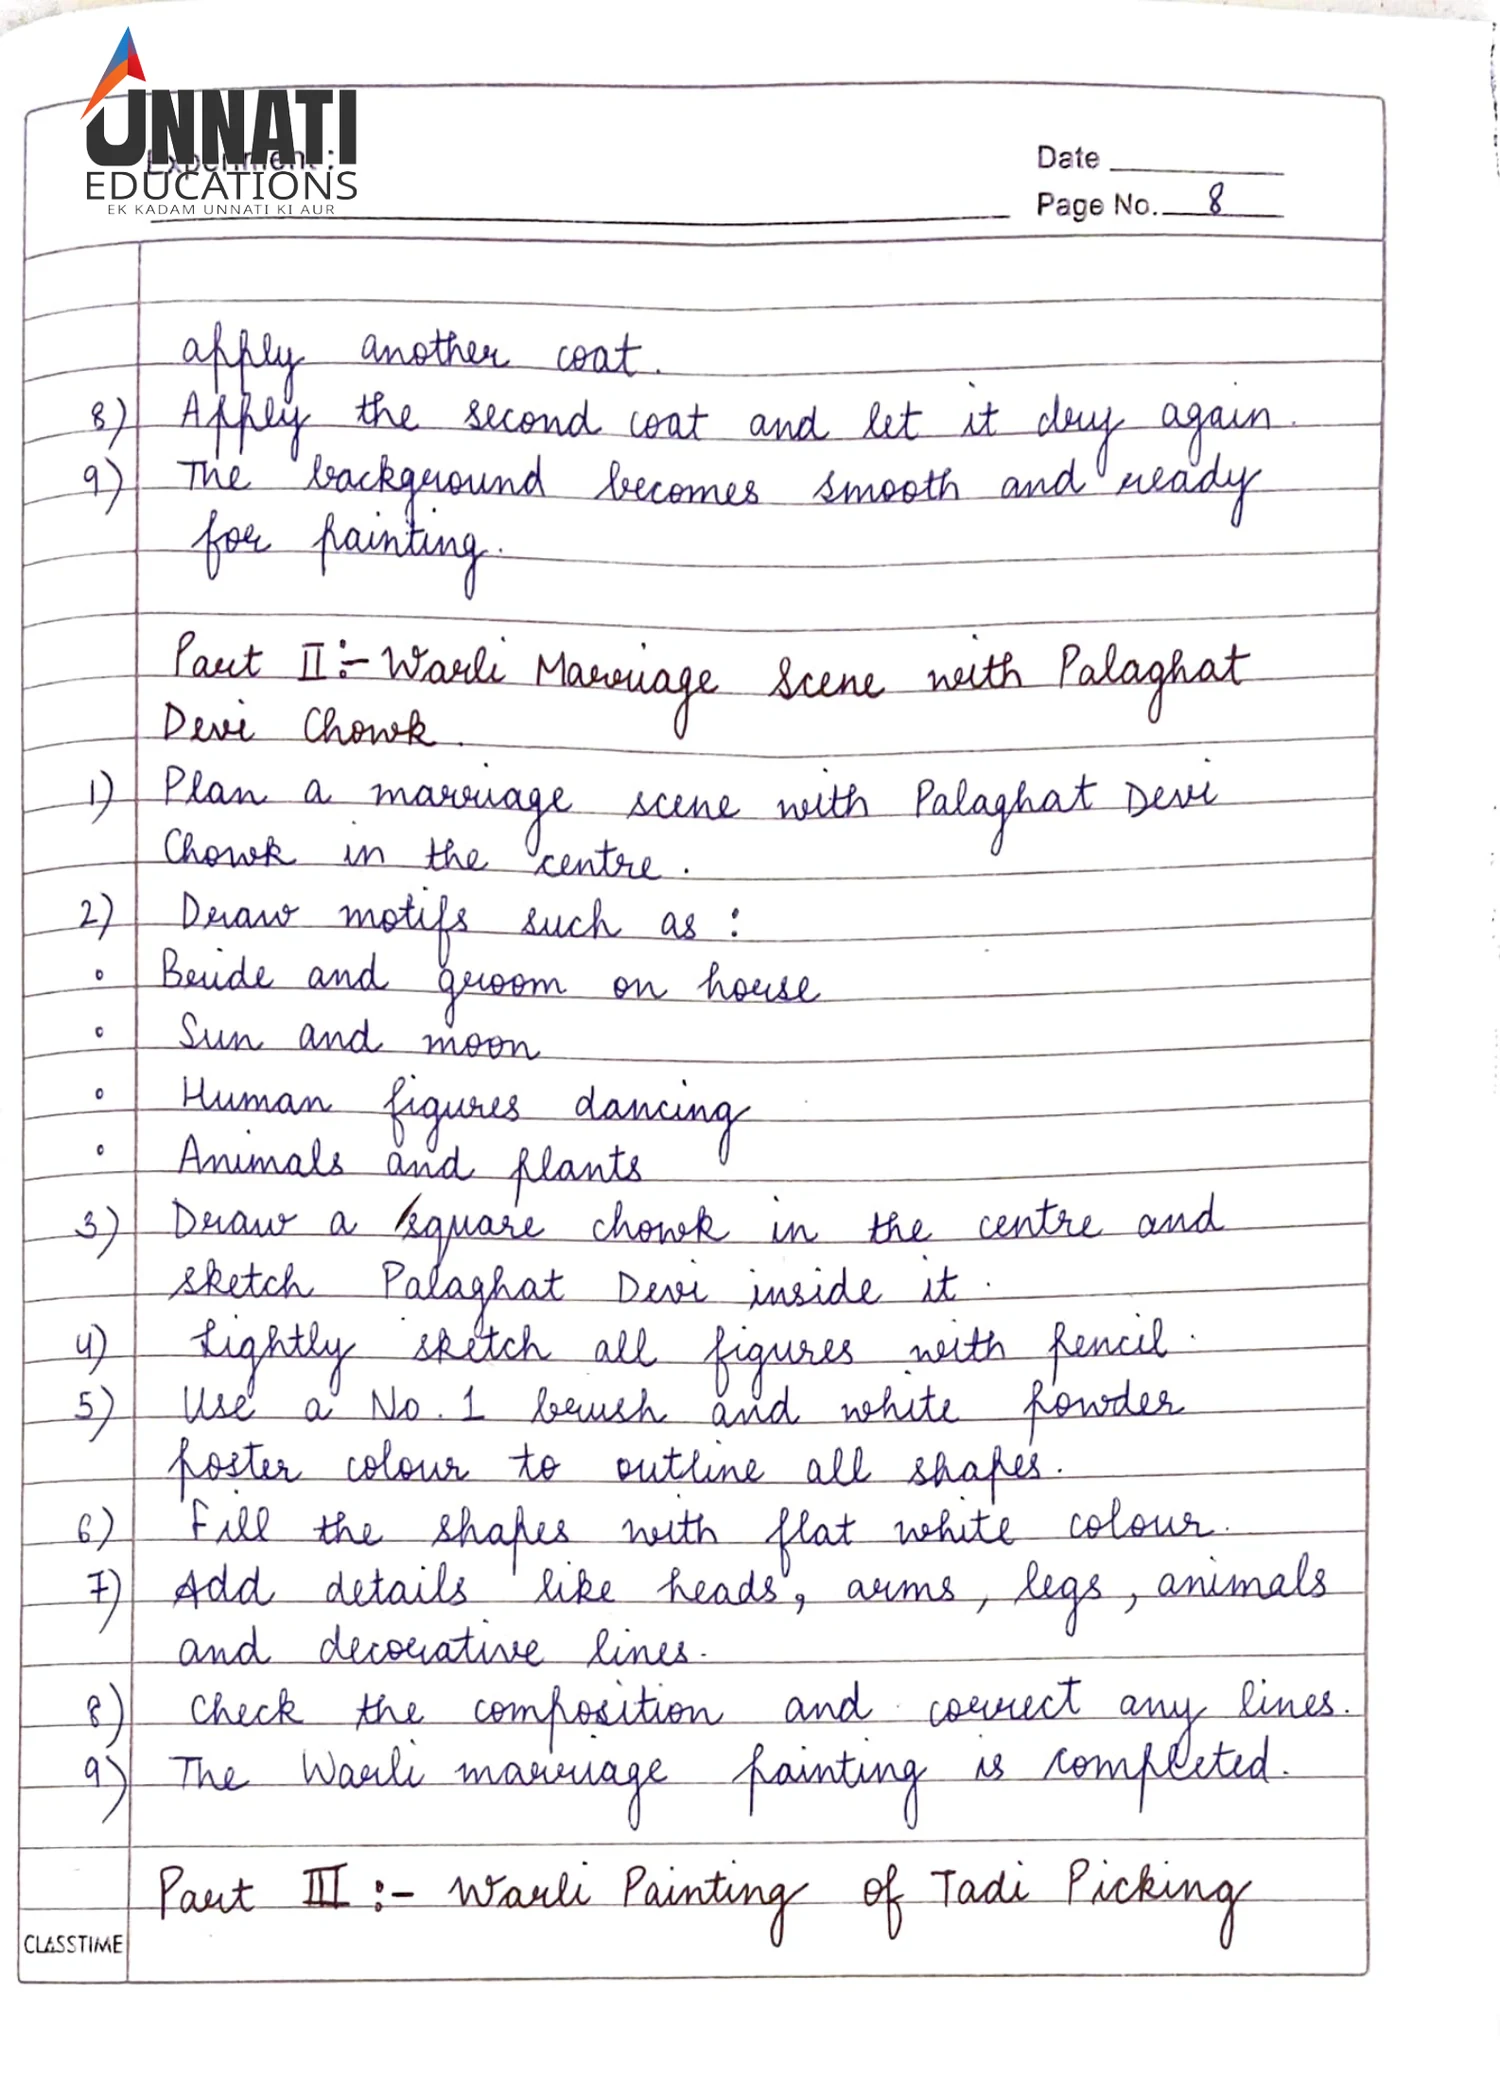 UNNATI
EDUCATIONS
EK KADAM UNNATI KI AUR
Experiment :
Date
Page No. 8
apply another coat.
8) Apply the second coat and let it dry again.
9) The background becomes smooth and ready
for painting.
Part II :- Warli Marriage Scene with Palaghat
Devi Chowk.
1) Plan a marriage scene with Palaghat Devi
Chowk in the centre.
2) Draw motifs such as :
° Bride and groom on house
° Sun and moon
° Human figures dancing
° Animals and plants
3) Draw a square chowk in the centre and
sketch Palaghat Devi inside it.
4) Lightly sketch all figures with pencil.
5) Use a No. 1 brush and white powder
poster colour to outline all shapes.
6) Fill the shapes with flat white colour.
7) Add details like heads, arms, legs, animals
and decorative lines.
8) Check the composition and correct any lines.
9) The Warli marriage painting is completed.
Part III :- Warli Painting of Tadi Picking
CLASSTIME